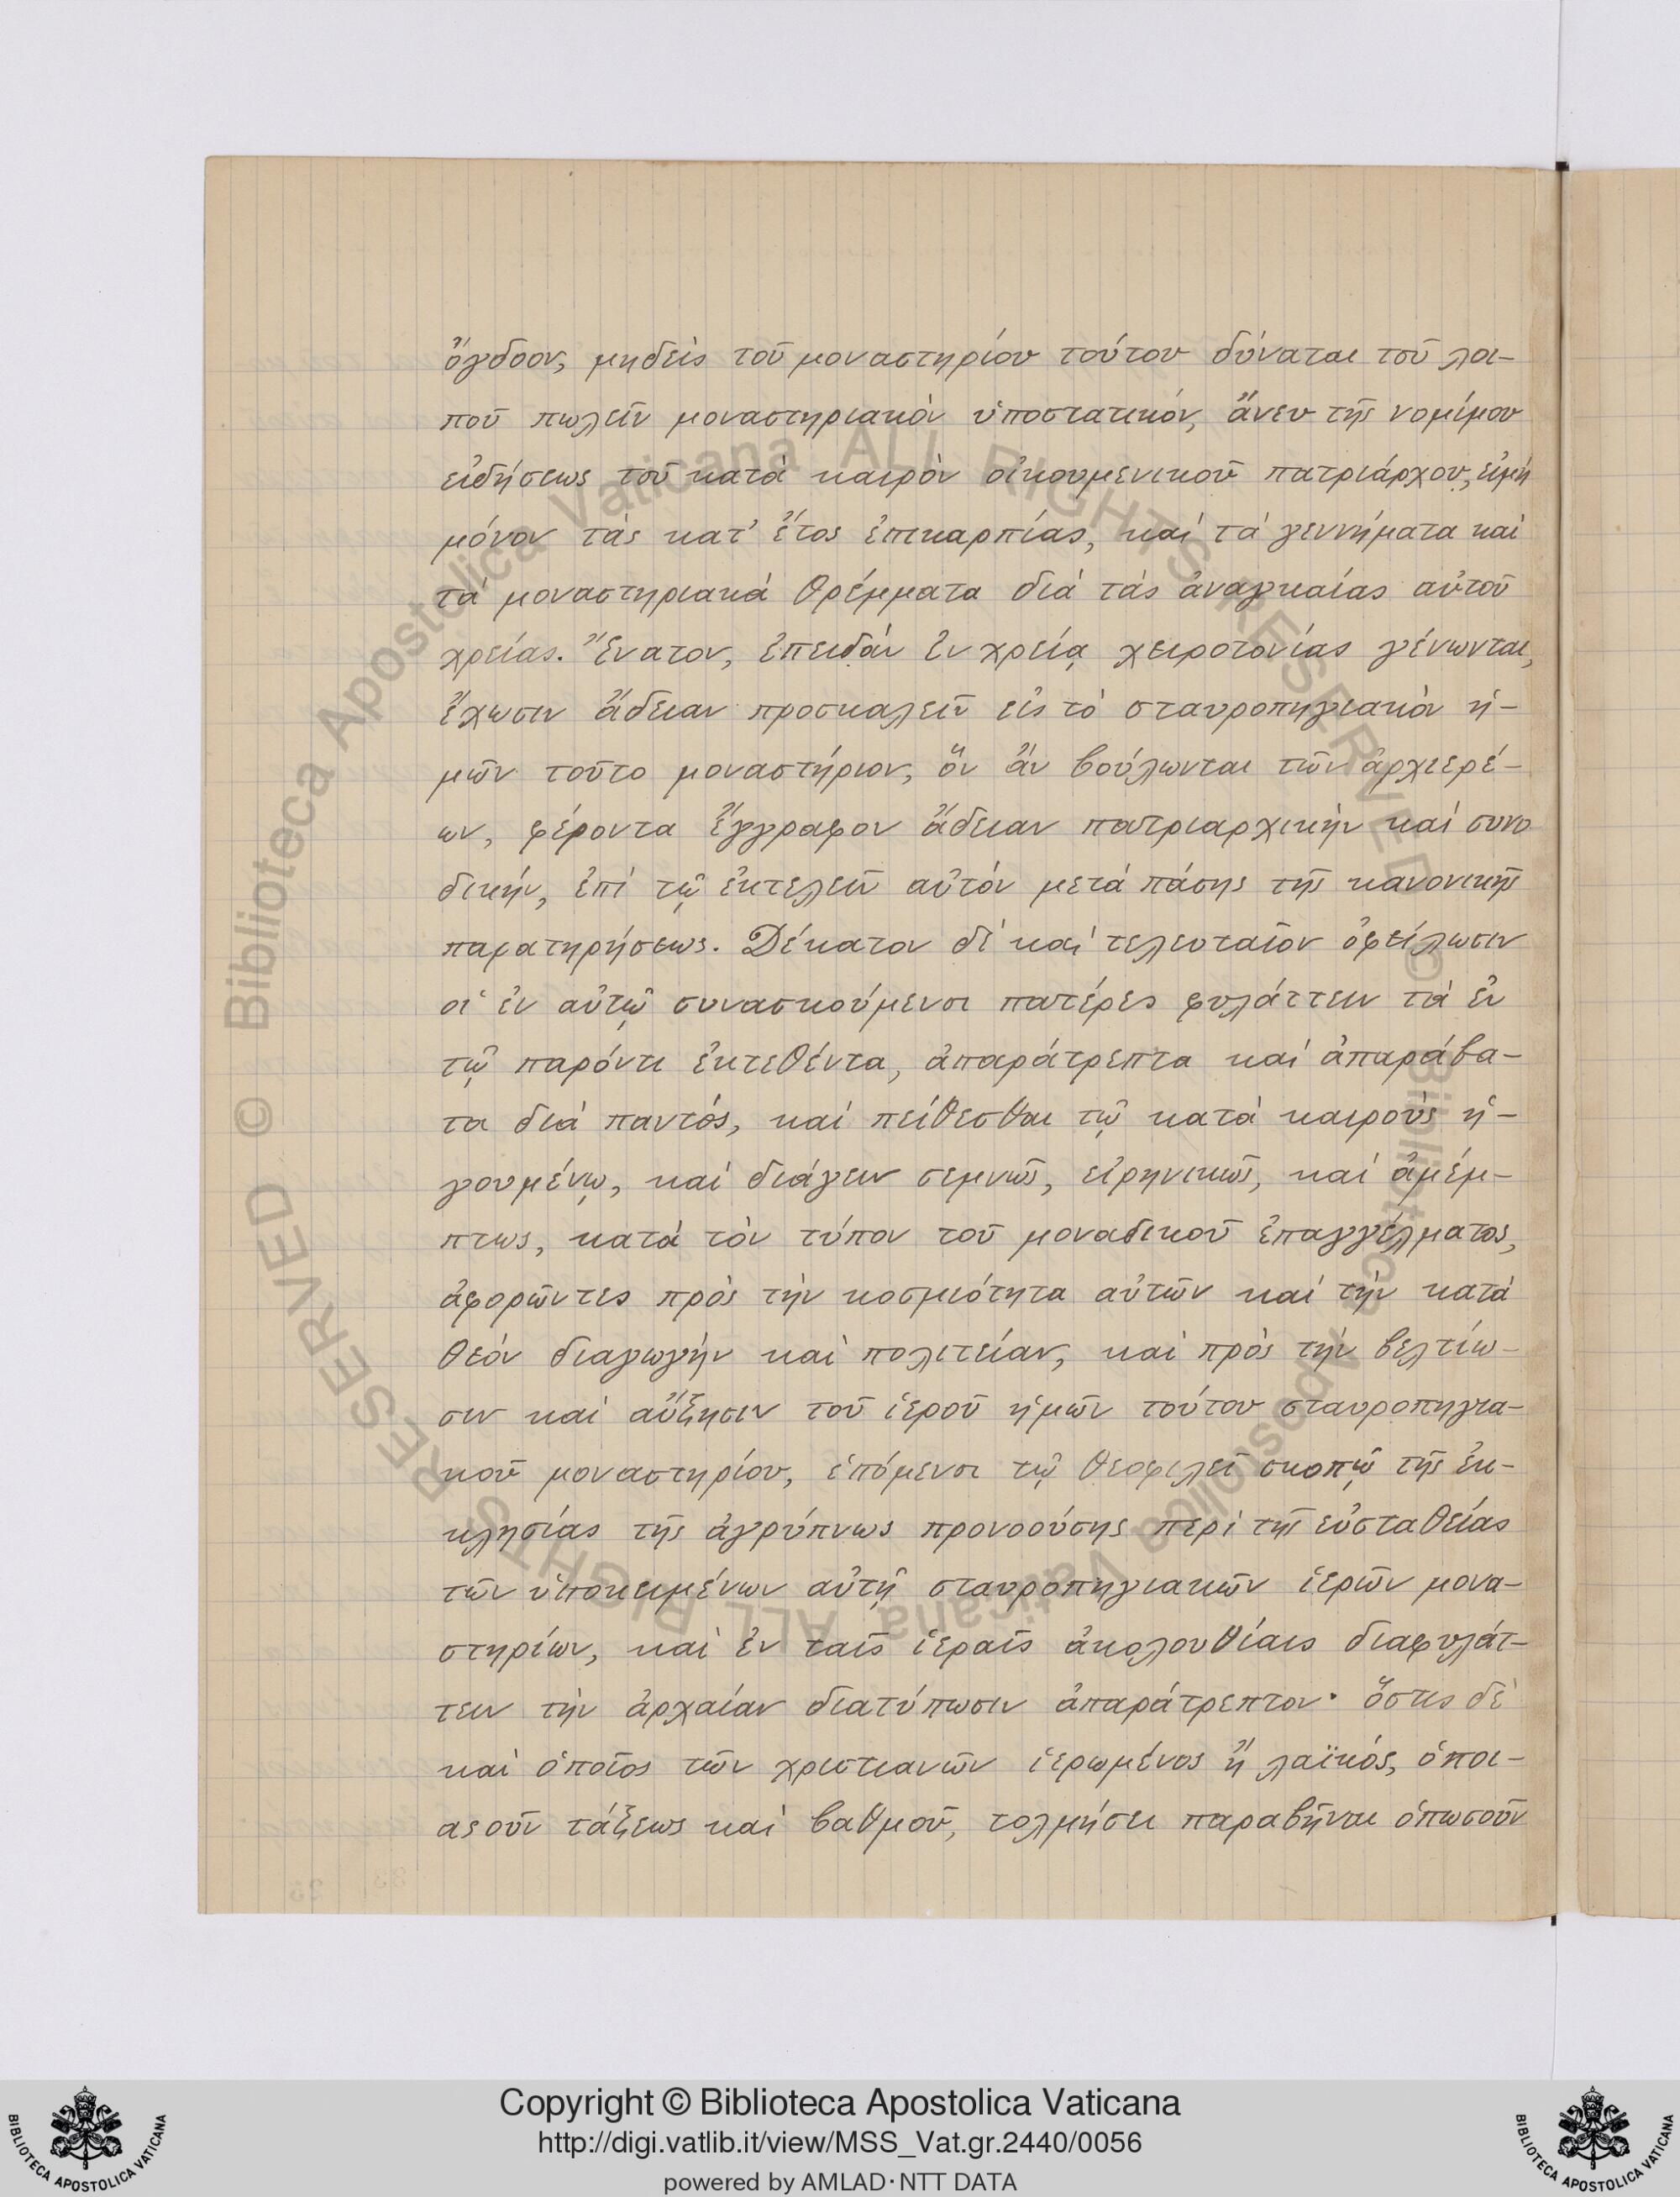 ὄγδοον, μηδεὶς τοῦ μοναστηρίου τούτου δύναται τοῦ λοι-
ποῦ πωλεῖν μοναστηριακὸν ὑποστατικόν, ἄνευ τῆς νομίμου
εἰδήσεως τοῦ κατὰ καιρὸν οἰκουμενικοῦ πατριάρχου, εἰμὴ
μόνον τὰς κατ' ἔτος ἐπικαρπίας, καὶ τὰ γεννήματα καὶ
τὰ μοναστηριακὰ θρέμματα διὰ τὰς ἀναγκαίας αὐτοῦ
χρείας. Ἔνατον, ἐπειδὰν ἐν χρείᾳ χειροτονίας γένωνται,
ἔχωσιν ἄδειαν προσκαλεῖν εἰς τὸ σταυροπηγιακὸν ἡ-
μῶν τοῦτο μοναστήριον, ὃν ἂν βούλωνται τῶν ἀρχιερέ-
ων, φέροντα ἔγγραφον ἄδειαν πατριαρχικὴν καὶ συνο
δικήν, ἐπὶ τῷ ἐκτελεῖν αὐτὸν μετὰ πάσης τῆς κανονικῆς
παρατηρήσεως. Δέκατον δὲ καὶ τελευταῖον ὀφείλωσιν
οἱ ἐν αὐτῷ συνασκούμενοι πατέρες φυλάττειν τὰ ἐν
τῷ παρόντι ἐκτεθέντα, ἀπαράτρεπτα καὶ ἀπαράβα-
τα διὰ παντός, καὶ πείθεσθαι τῷ κατὰ καιροὺς ἡ-
γουμένῳ, καὶ διάγειν σεμνῶς, εἰρηνικῶς, καὶ ἀμέμ-
πτως, κατὰ τὸν τύπον τοῦ μοναδικοῦ ἐπαγγέλματος,
ἀφορῶντες πρὸς τὴν κοσμιότητα αὐτῶν καὶ τὴν κατὰ
θεὸν διαγωγὴν καὶ πολιτείαν, καὶ πρὸς τὴν βελτίω-
σιν καὶ αὔξησιν τοῦ ἱεροῦ ἡμῶν τούτου σταυροπηγια-
κοῦ μοναστηρίου, ἑπόμενοι τῷ θεοφιλεῖ σκοπῷ τῆς ἐκ-
κλησίας τῆς ἀγρύπνως προνοούσης περὶ τῆς εὐσταθείας
τῶν ὑποκειμένων αὐτῇ σταυροπηγιακῶν ἱερῶν μονα-
στηρίων, καὶ ἐν ταῖς ἱεραῖς ἀκολουθίαις διαφυλάτ-
τειν τὴν ἀρχαίαν διατύπωσιν ἀπαράτρεπτον· ὅστις δὲ
καὶ ὁποῖος τῶν χριστιανῶν ἱερωμένος ἢ λαϊκός, ὁποι-
ασοῦν τάξεως καὶ βαθμοῦ, τολμήσει παραβῆναι ὁπωσοῦν
Copyright © Biblioteca Apostolica Vaticana
http://digi.vatlib.it/view/MSS_Vat.gr.2440/0056
powered by AMLAD·NTT DATA
BIBLIOTECA APOSTOLICA VATICANA
BIBLIOTECA APOSTOLICA VATICANA
© Biblioteca Apostolica Vaticana ALL RIGHTS RESERVED
© Biblioteca Apostolica Vaticana ALL RIGHTS RESERVED